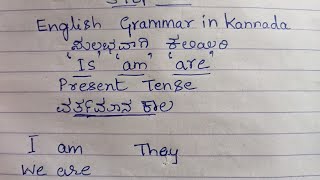 English Grammar in Kannada
ಸುಲಭವಾಗಿ ಕಲಿಯಿರಿ
'Is' 'am' 'are'
Present Tense
ವರ್ತಮಾನ ಕಾಲ
I am They
We are